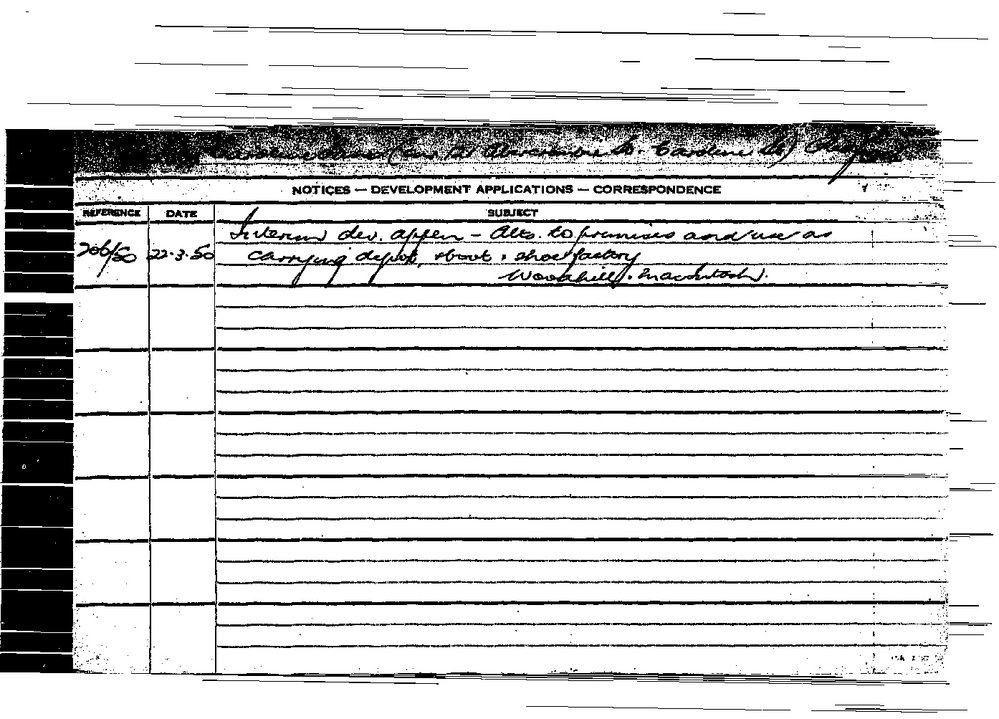 Caroline
NOTICES — DEVELOPMENT APPLICATIONS — CORRESPONDENCE
REFERENCE DATE SUBJECT
Interim dev. applen - Alts. to premises and use as
266/50 22-3-50 carrying depot, about & shoe factory
Woodhill. Macintosh.